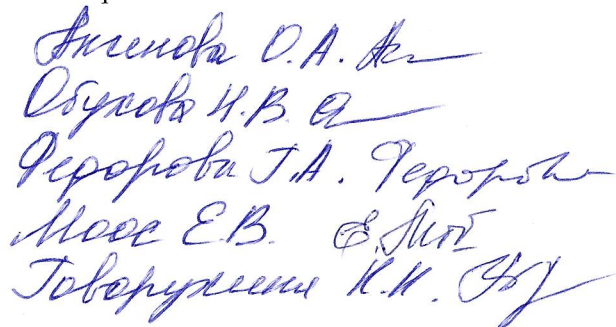 Аксенова О.А.
Обухова Н.В.
Федорова Г.А. Федорова
Моос Е.В.
Говорухина Н.Н.